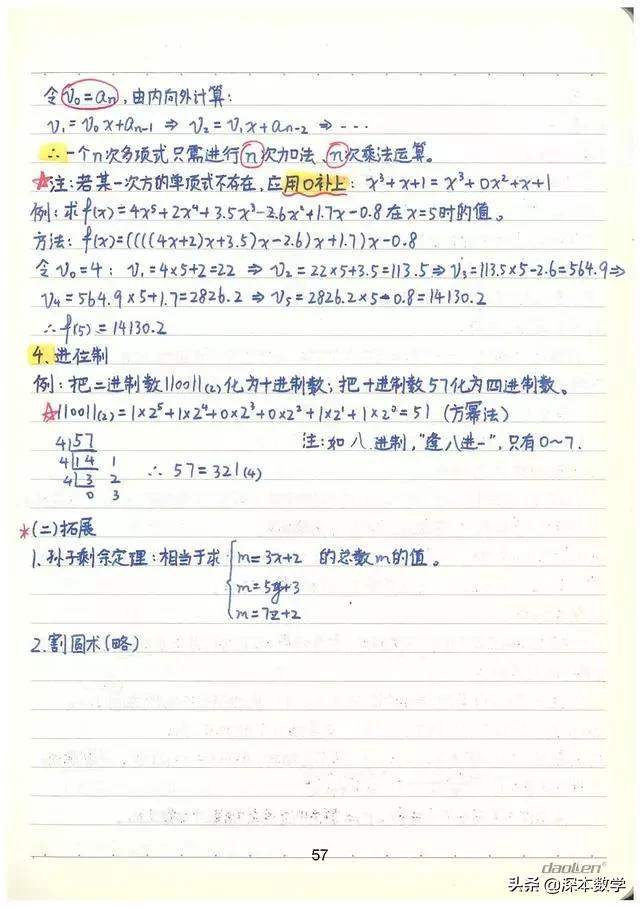 令 v₀=aₙ, 由内向外计算:
v₁=v₀x+aₙ₋₁ ⇒ v₂=v₁x+aₙ₋₂ ⇒ ···
∴一个n次多项式只需进行n次加法、n次乘法运算。
☆注:若某一次方的单项式不存在,应用0补上: x³+x+1=x³+0x²+x+1
例:求f(x)=4x⁵+2x⁴+3.5x³-2.6x²+1.7x-0.8在x=5时的值。
方法: f(x)=((((4x+2)x+3.5)x-2.6)x+1.7)x-0.8
令v₀=4: v₁=4×5+2=22 ⇒ v₂=22×5+3.5=113.5 ⇒ v₃=113.5×5-2.6=564.9 ⇒
v₄=564.9×5+1.7=2826.2 ⇒ v₅=2826.2×5-0.8=14130.2
∴f(5)=14130.2
4.进位制
例:把二进制数110011(2)化为十进制数;把十进制数57化为四进制数。
☆110011(2)=1×2⁵+1×2⁴+0×2³+0×2²+1×2¹+1×2⁰=51 (方幂法)
4|57 注:如八进制,"逢八进一",只有0~7.
4|14 1 ∴ 57=321(4)
4|3 2
0 3
*(二)拓展
1.孙子剩余定理:相当于求{m=3x+2 的总数m的值。
m=5y+3
m=7z+2
2.割圆术(略)
57
daoLen®
头条@深本数学